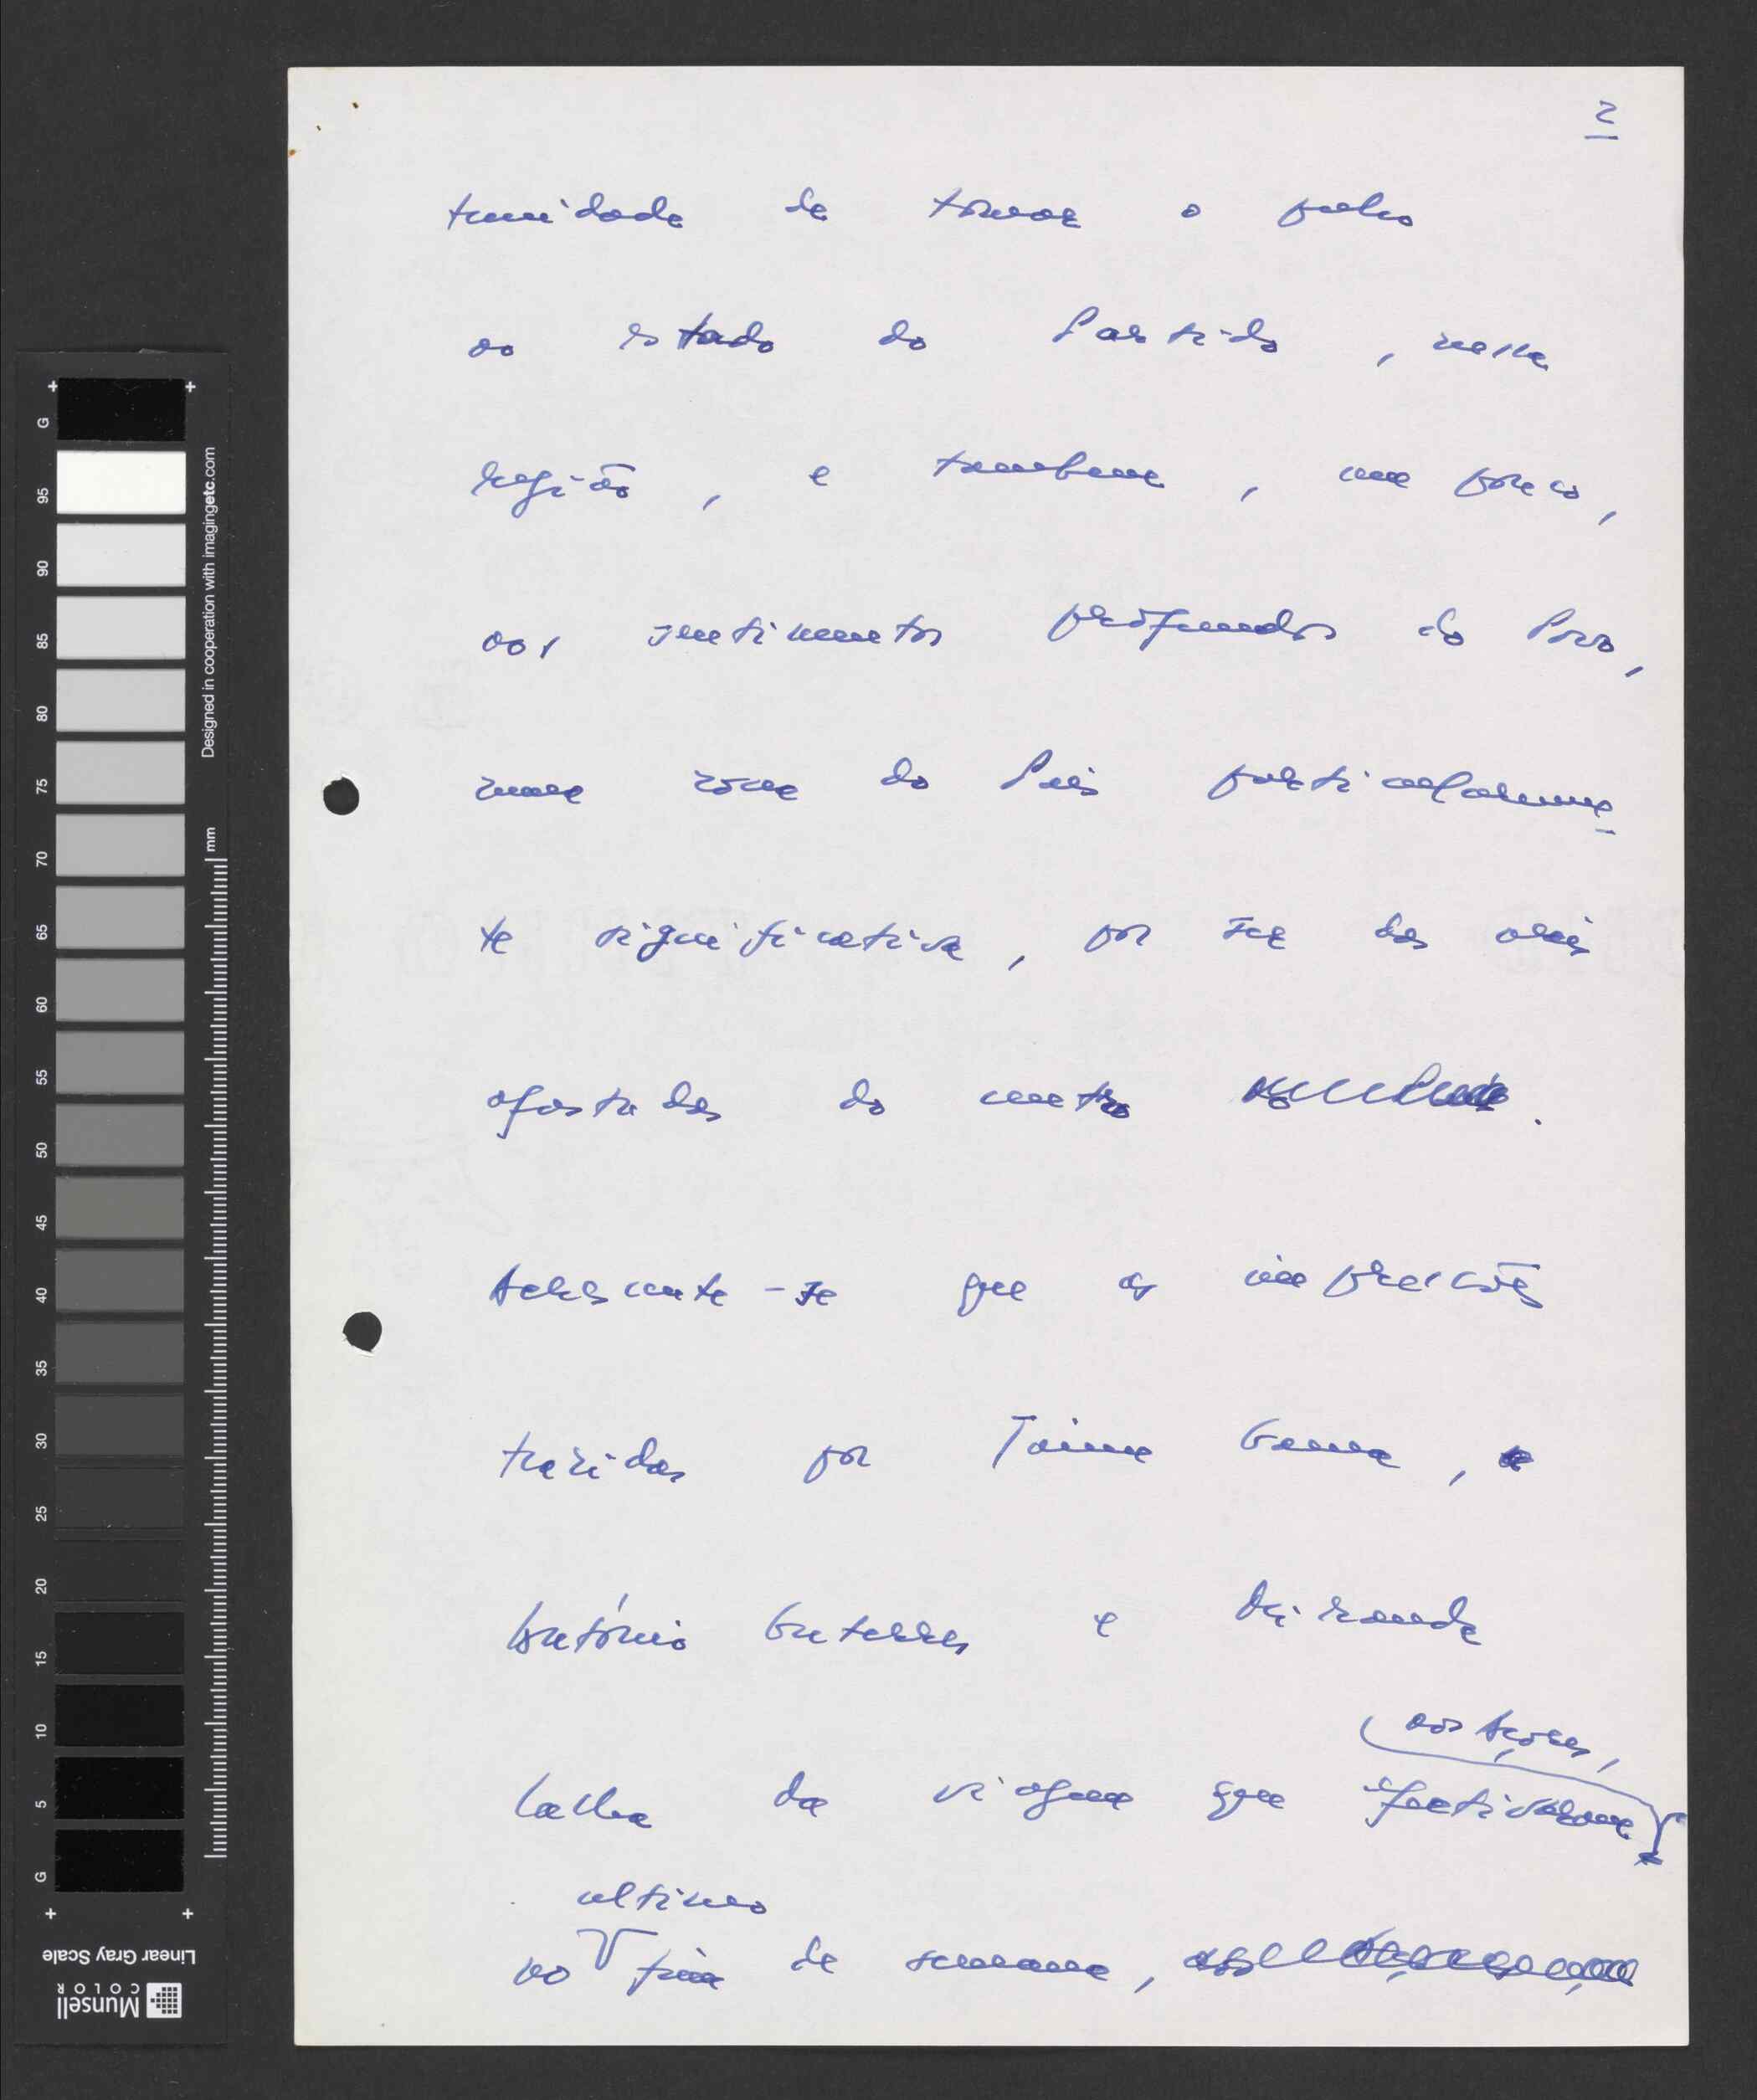 2
tunidade de tomar o pulso
ao estado do Partido, nessa
região, e tambem, um pouco,
aos sentimentos profundos do Povo,
numa zona do País particularmen
te significativa, por ser das mais
afastadas do centro
Acrescente-se que as impressões
trazidas por Jaime Gama,
António Guterres e Miranda
Calha da viagem que efectivaram
aos Açores,
ultimo
no fim de semana,
G 95 90 85 80 75 70 65 60 55 50 45 40 35 30 25 20 15 10 5 G
Designed in cooperation with imagingetc.com
mm
Linear Gray Scale
Munsell
COLOR